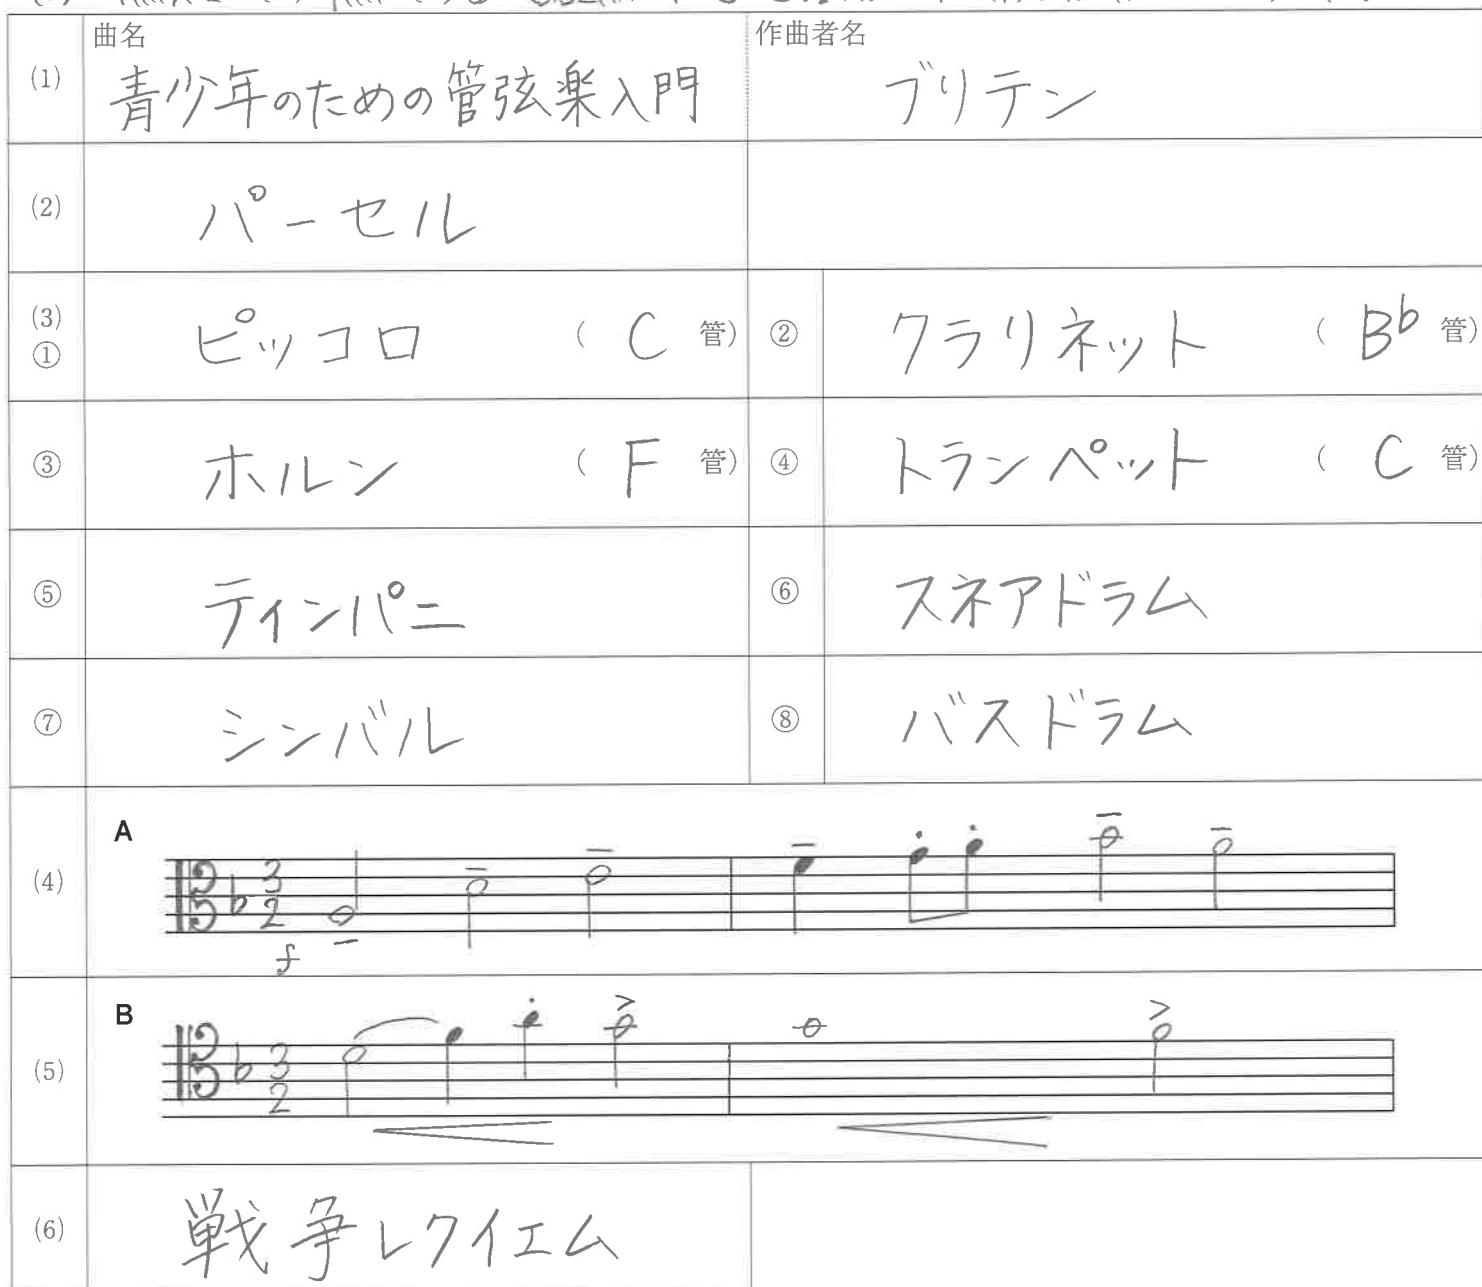 曲名
作曲者名
(1)
青少年のための管弦楽入門
ブリテン
(2)
パーセル
(3)
①
ピッコロ
( C 管)
②
クラリネット
( B♭ 管)
③
ホルン
( F 管)
④
トランペット
( C 管)
⑤
ティンパニ
⑥
スネアドラム
⑦
シンバル
⑧
バスドラム
(4)
A
3
2
f
(5)
B
3
2
(6)
戦争レクイエム